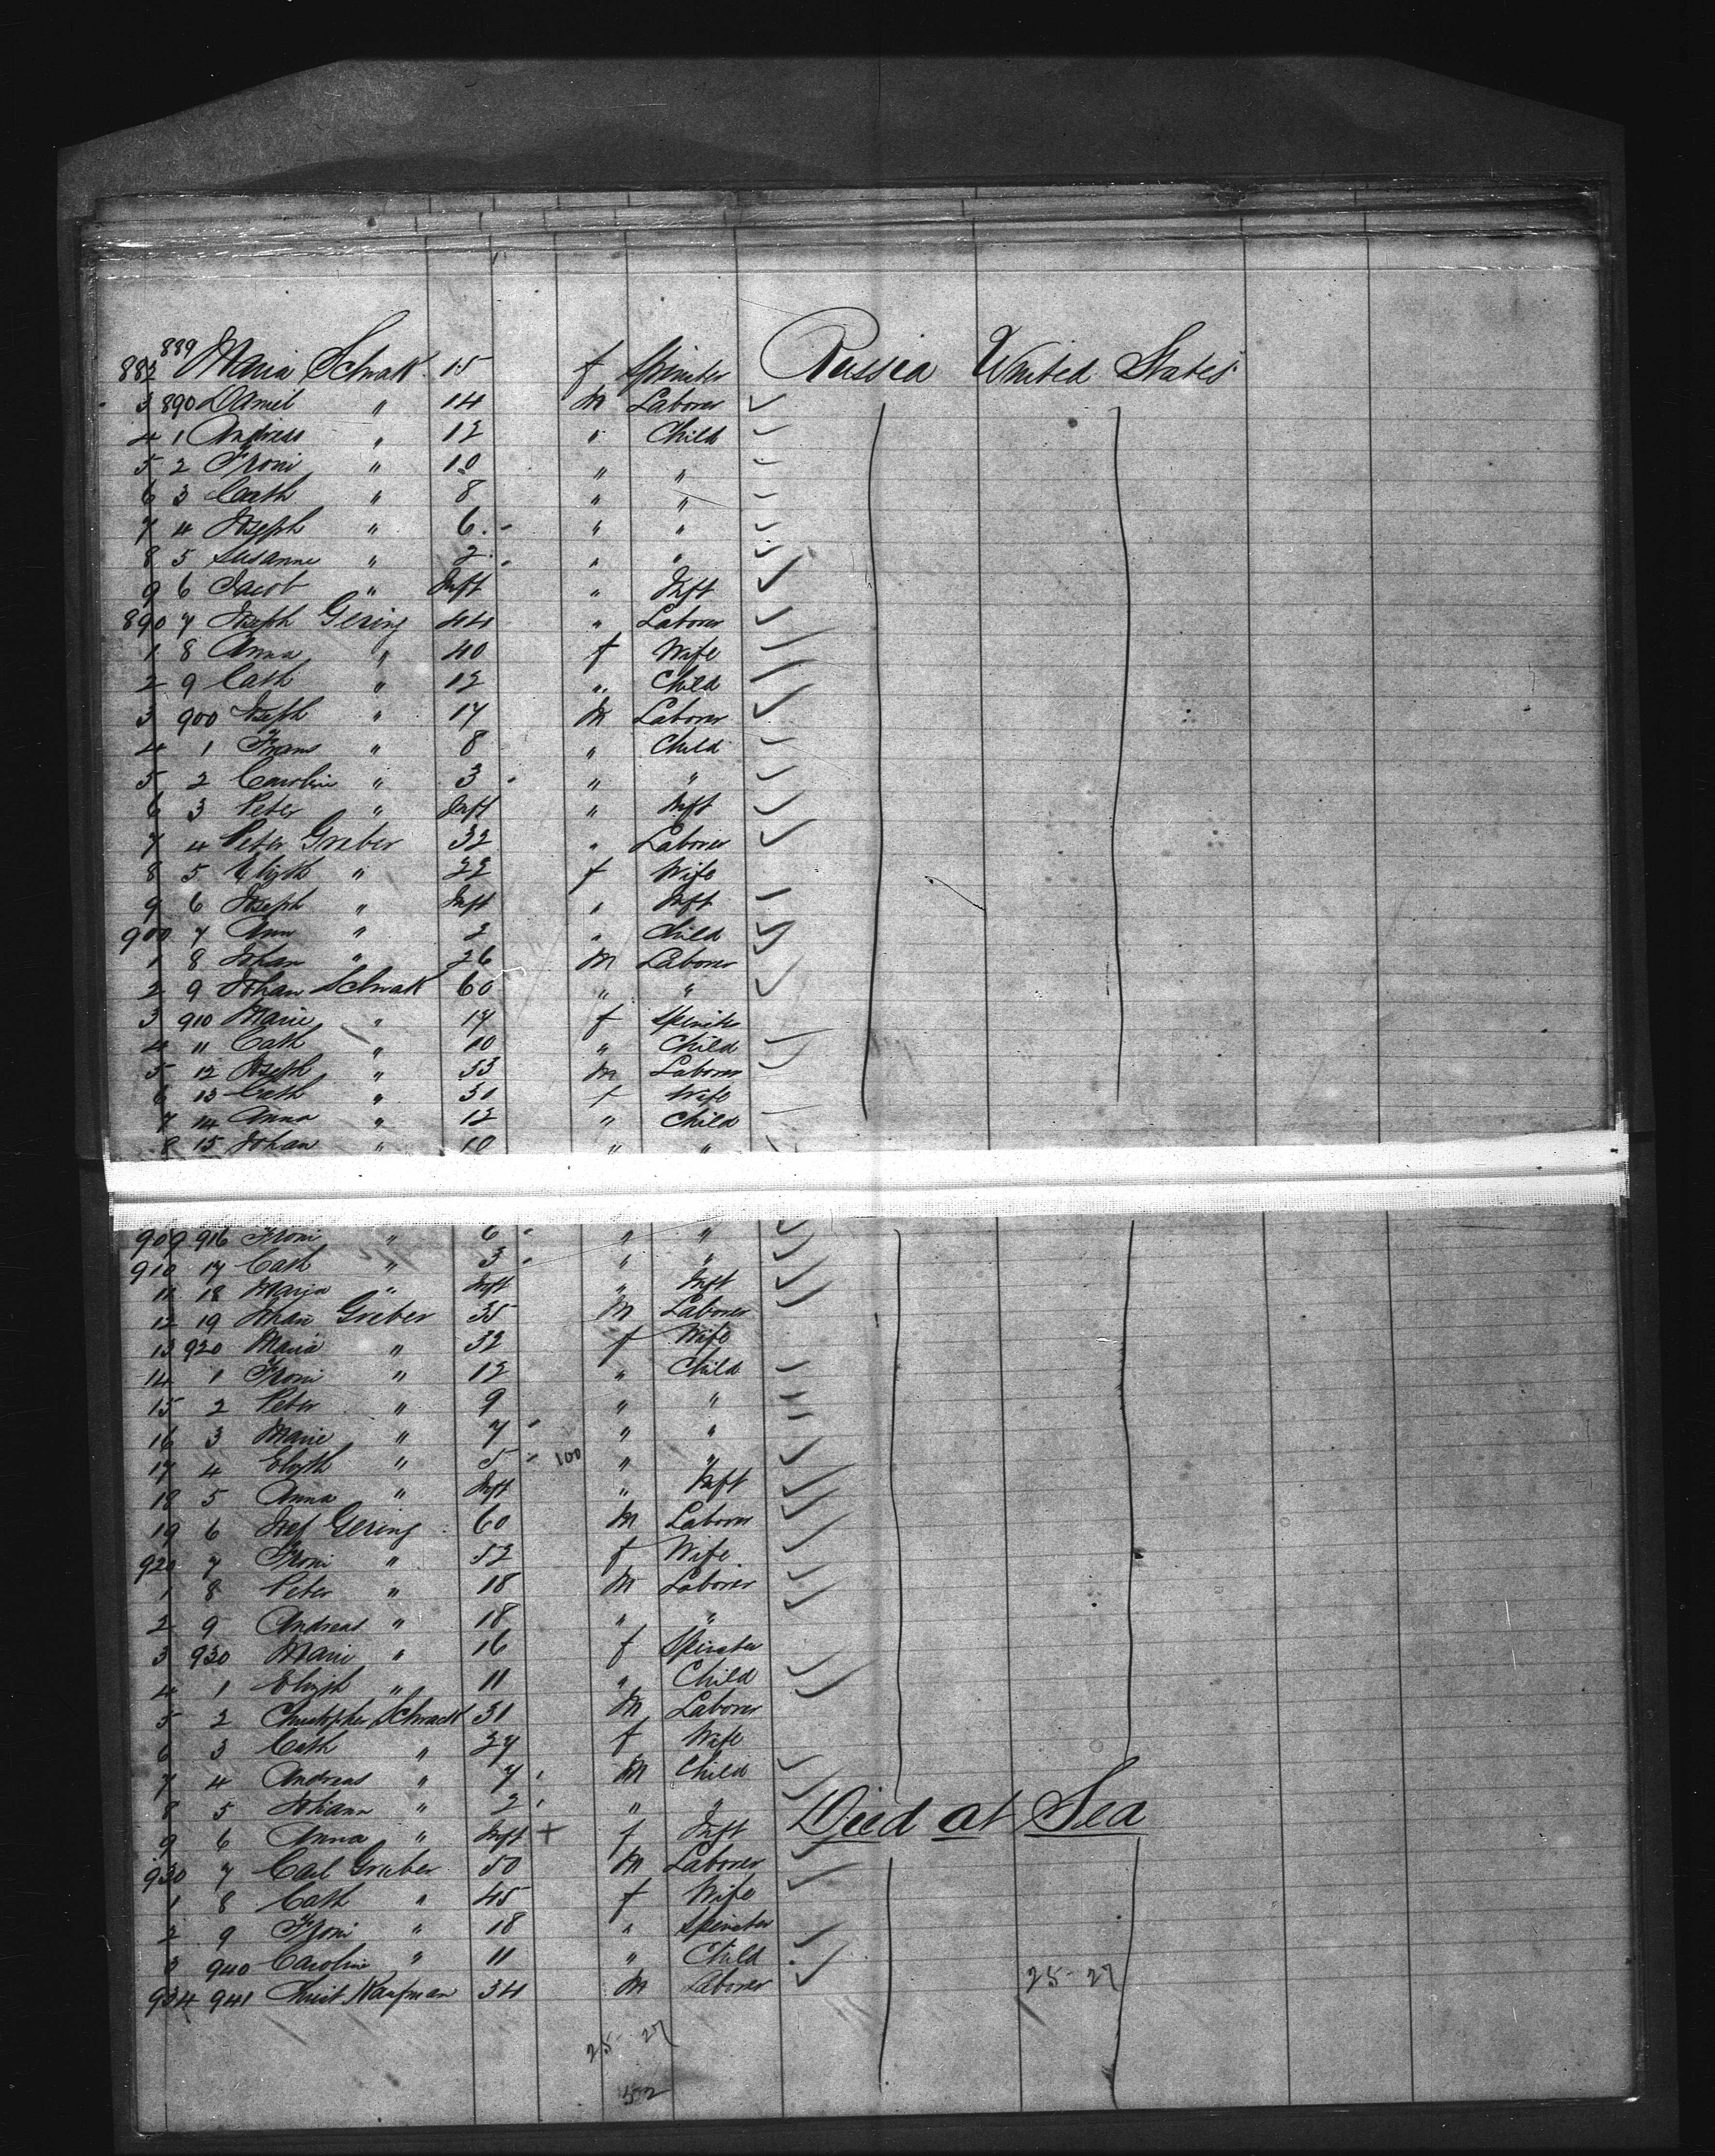 882 889 Maria Schrak 15 f Spinster Russia United States
3 890 Daniel " 14 M Laborer
4 1 Andreas " 12 " Child
5 2 Froni " 10 " "
6 3 Cath " 8 " "
7 4 Joseph " 6 " "
8 5 Susanne " 2 " "
9 6 Jacob " Inft " Inft
890 7 Joseph Gering 44 " Laborer
1 8 Anna " 40 f Wife
2 9 Cath " 12 " Child
3 900 Joseph " 17 M Laborer
4 1 Frans " 8 " Child
5 2 Carolin " 3 " "
6 3 Peter " Inft " Inft
7 4 Peter Graber 32 " Laborer
8 5 Elizth " 22 f Wife
9 6 Joseph " Inft " Inft
900 7 Ann " 2 " Child
1 8 Johan " 26 M Laborer
2 9 Johan Schrak 60 " "
3 910 Marie " 17 f Spinster
4 11 Cath " 10 " Child
5 12 Joseph " 33 M Laborer
6 13 Cath " 30 f Wife
7 14 Anna " 12 " Child
8 15 Johan " 10 " "
909 916 Froni " 6 " "
910 17 Cath " 3 " "
11 18 Maria " Inft " Inft
12 19 Johan Graber 35 M Laborer
13 920 Maria " 32 f Wife
14 1 Froni " 12 " Child
15 2 Peter " 9 " "
16 3 Marie " 7 " "
17 4 Elizth " 5 100 " "
18 5 Anna " Inft " Inft
19 6 Josef Gering 60 M Laborer
920 7 Froni " 52 f Wife
1 8 Peter " 18 M Laborer
2 9 Andreas " 18 " "
3 930 Marie " 16 f Spinster
4 1 Elizth " 11 " Child
5 2 Christopher Schrack 31 M Laborer
6 3 Cath " 27 f Wife
7 4 Andreas " 7 M Child
8 5 Johann " 2 " "
9 6 Anna " Inft + f Inft Died at Sea
930 7 Carl Graber 50 M Laborer
1 8 Cath " 45 f Wife
2 9 Froni " 18 " Spinster
3 940 Carolin " 11 " Child
934 941 Christ Kaufman 34 M Laborer 25-27
25 27
52